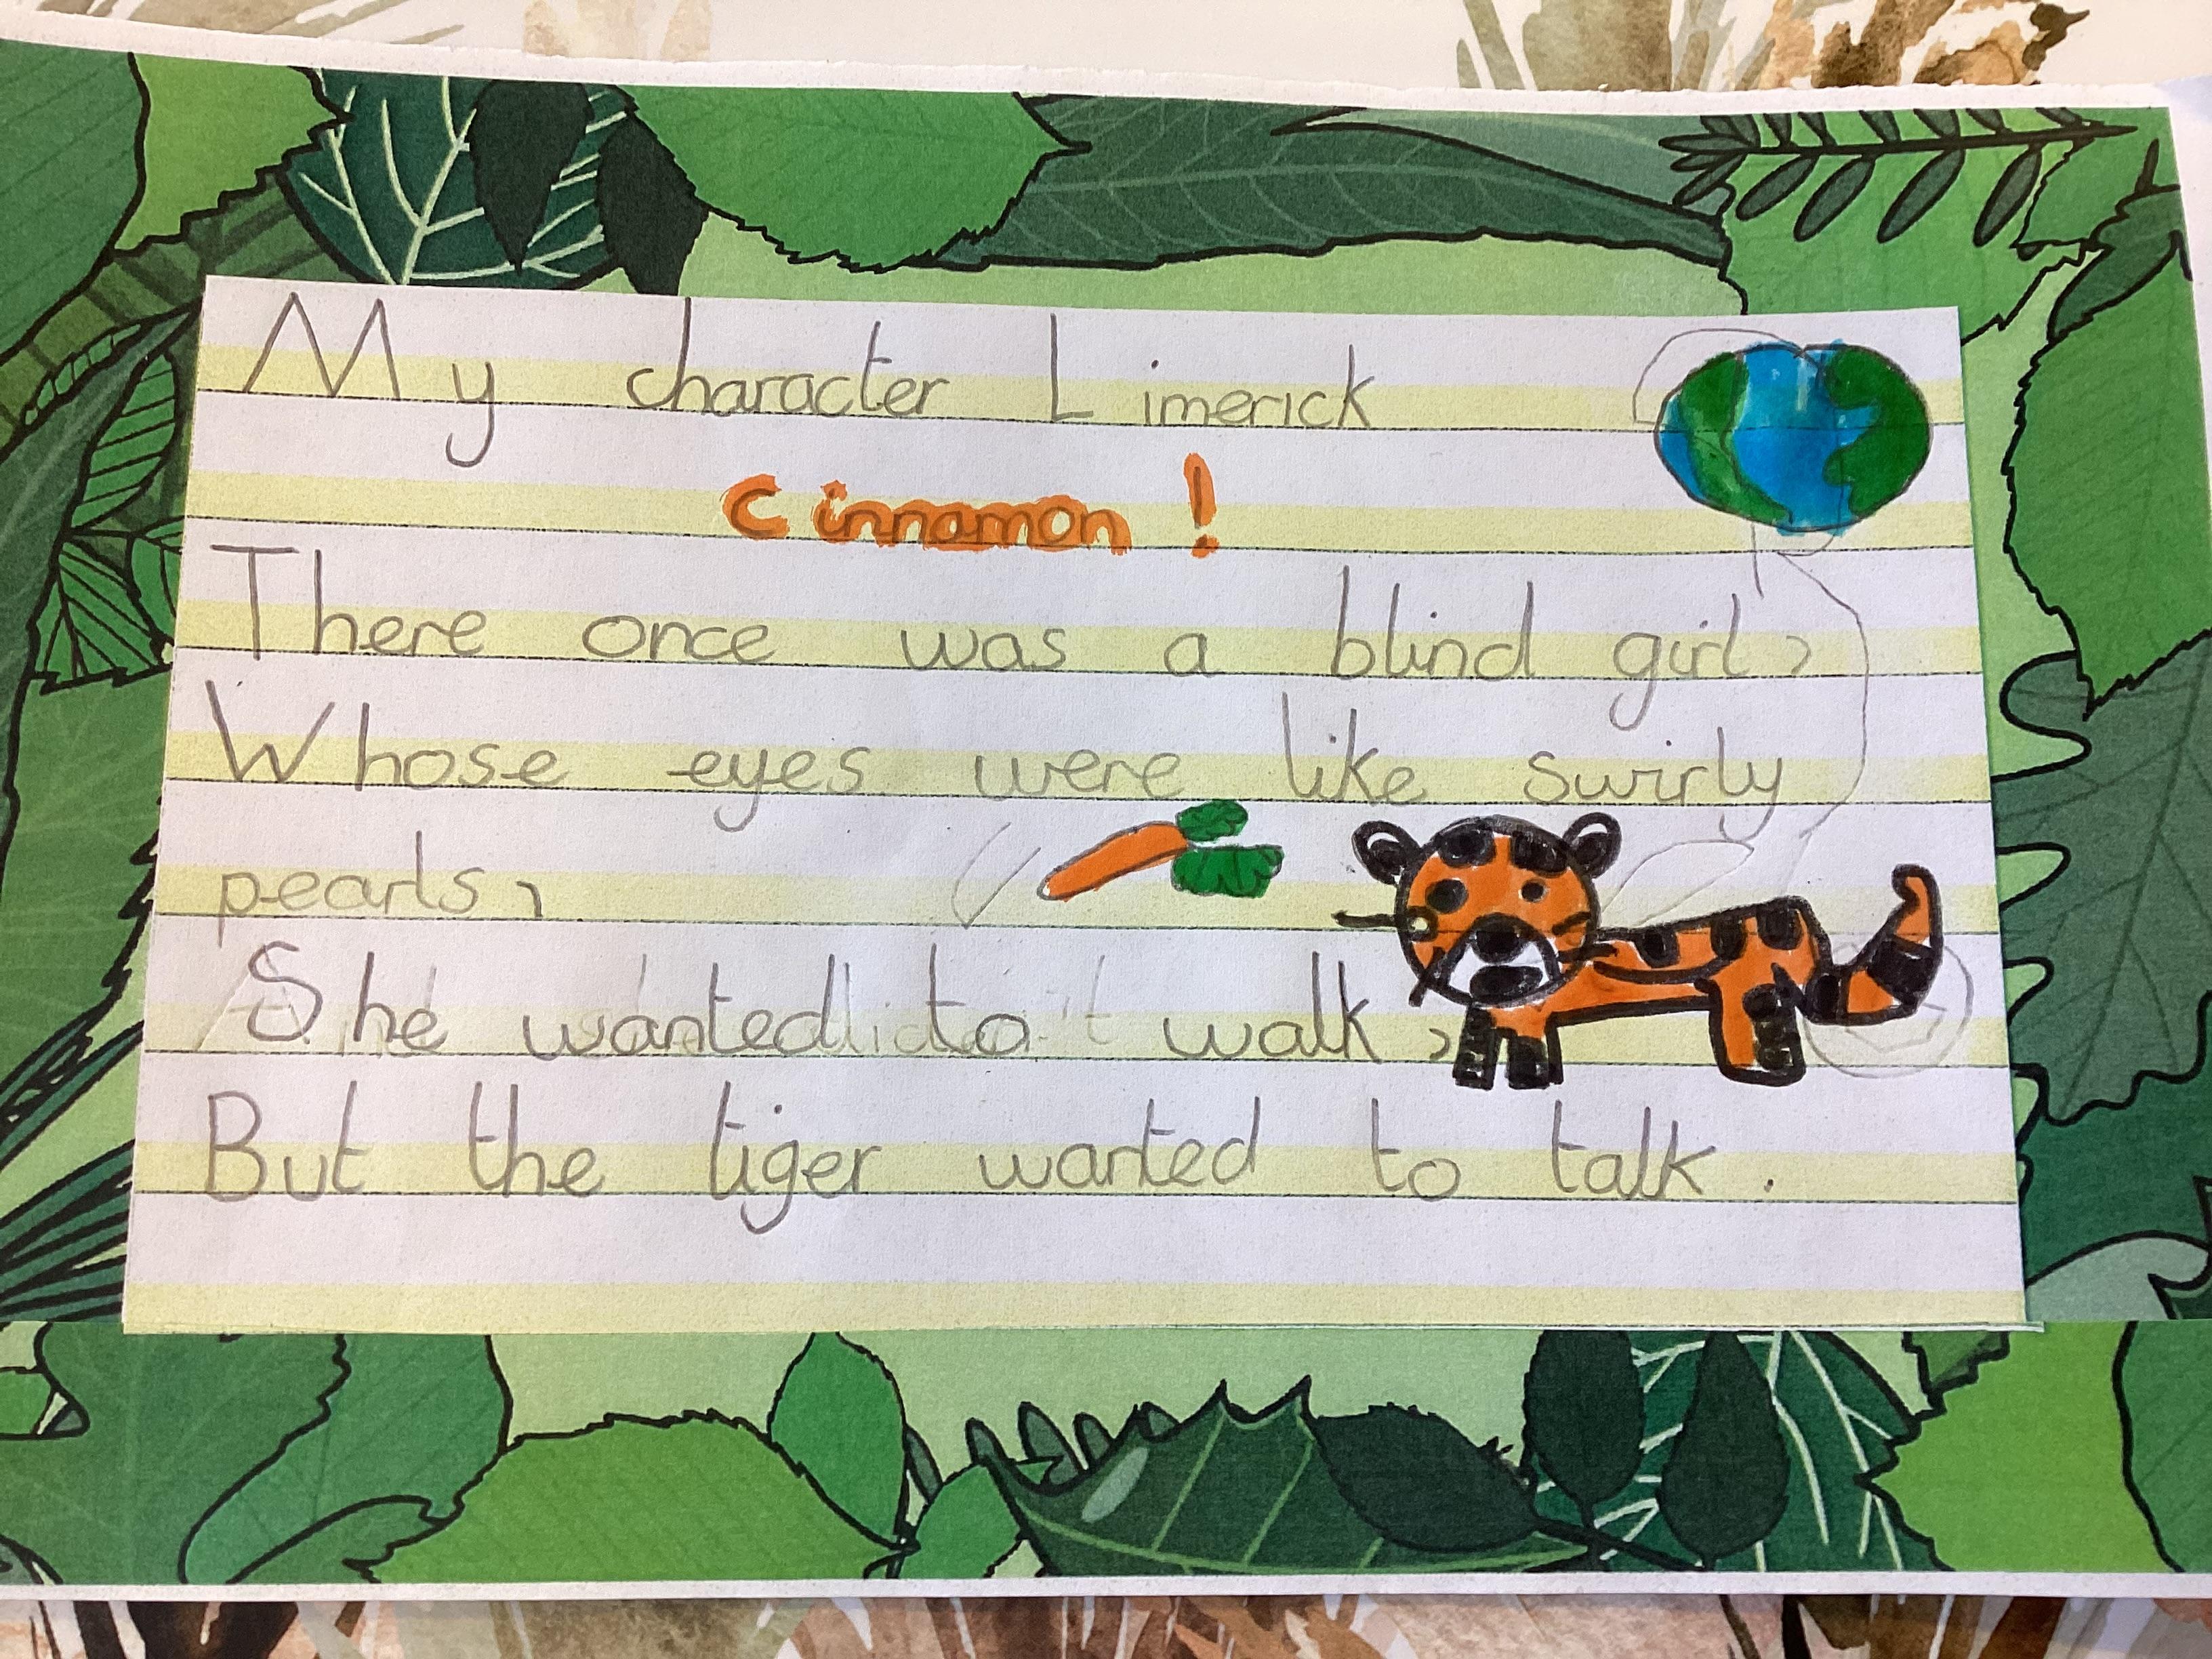 My character Limerick
Cinnamon!
There once was a blind girl,
Whose eyes were like swirly
pearls,
She wanted to walk,
But the tiger wanted to talk.